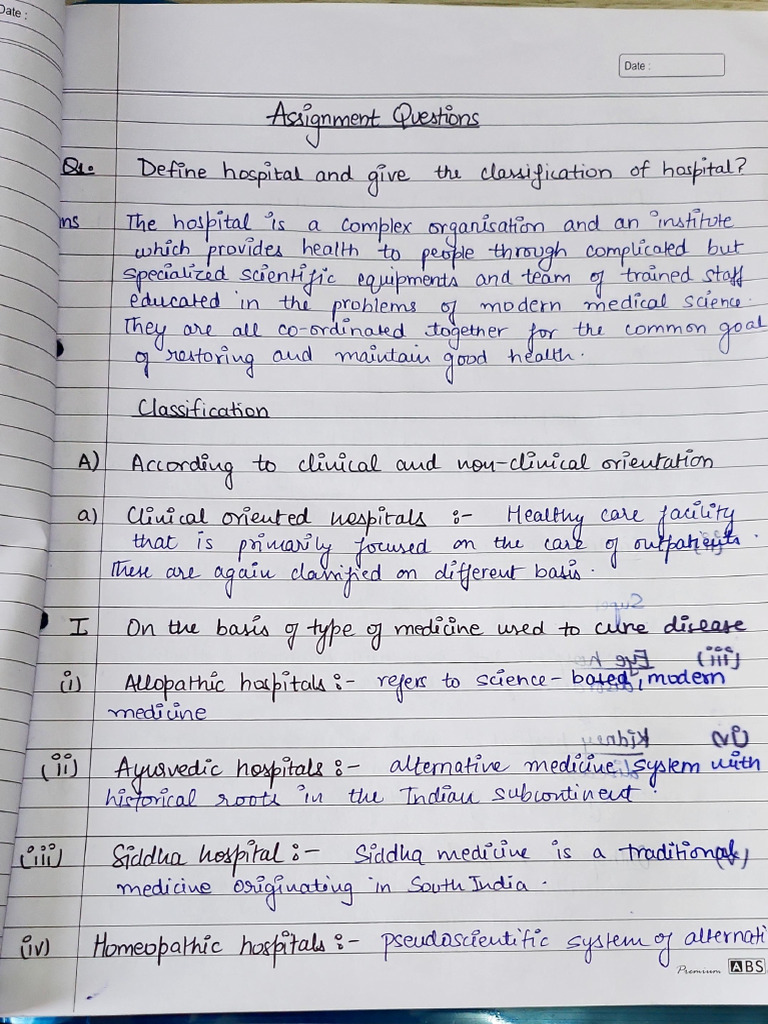 Date :
Date :
Assignment Questions
Q1. Define hospital and give the classification of hospital?
ns The hospital is a complex organisation and an institute
which provides health to people through complicated but
specialized scientific equipments and team of trained staff
educated in the problems of modern medical science.
They are all co-ordinated together for the common goal
of restoring and maintain good health.
Classification
A) According to clinical and non-clinical orientation
a) Clinical oriented hospitals :- Healthy care facility
that is primarily focused on the care of outpatients.
These are again classified on different basis.
I On the basis of type of medicine used to cure disease
(i) Allopathic hospitals :- refers to science-based, modern
medicine
(ii) Ayurvedic hospitals :- alternative medicine system with
historical roots in the Indian subcontinent.
(iii) Siddha hospital :- Siddha medicine is a traditional
medicine originating in South India.
(iv) Homeopathic hospitals :- pseudoscientific system of alternati
Premium ABS